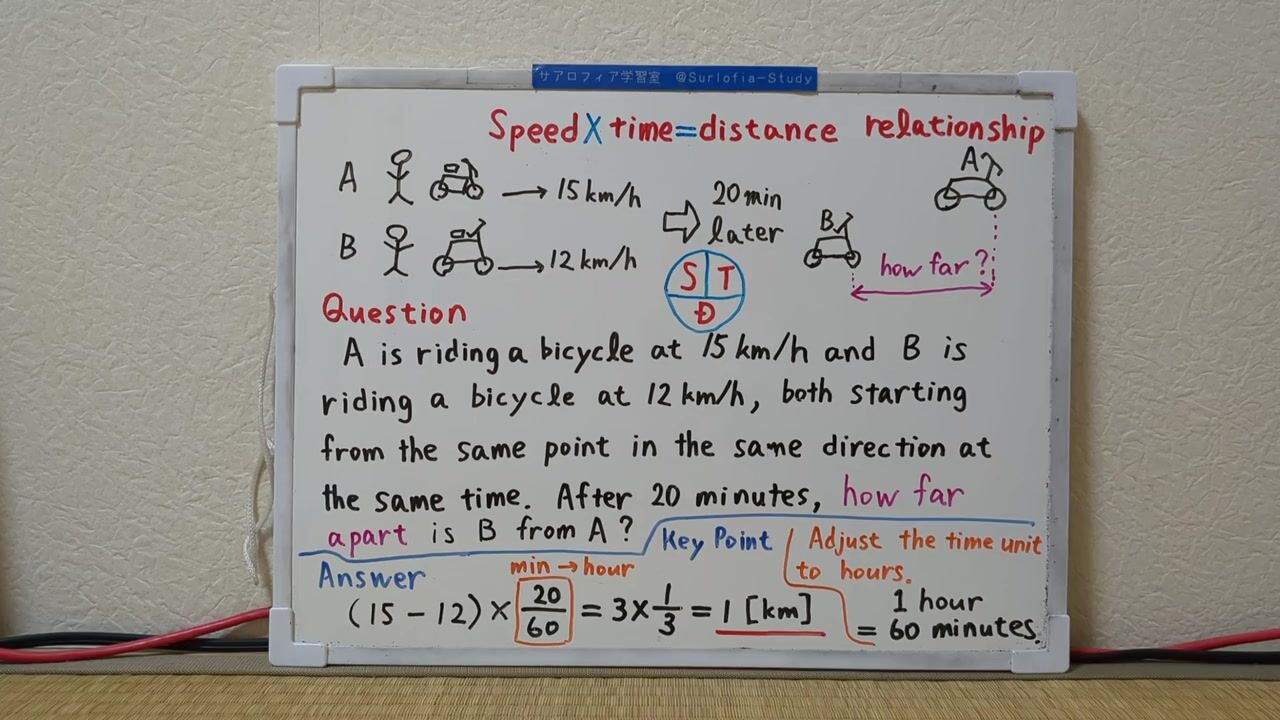 サアロフィア学習室 @Surlofia-Study
Speed X time = distance relationship
A → 15 km/h
B → 12 km/h
20 min
later
S T
D
B
A
how far?
Question
A is riding a bicycle at 15 km/h and B is
riding a bicycle at 12 km/h, both starting
from the same point in the same direction at
the same time. After 20 minutes, how far
apart is B from A?
Key Point
Adjust the time unit
to hours.
1 hour
= 60 minutes.
Answer
min → hour
(15 - 12) × 20/60 = 3 × 1/3 = 1 [km]